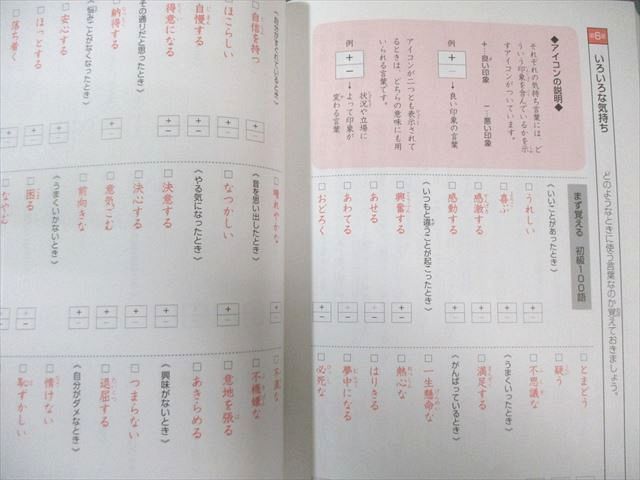 第6章
いろいろな気持ち
どのようなときに使う言葉なのか覚えておきましょう。
◆アイコンの説明◆
それぞれの気持ち言葉には、ど
ういう印象を含んでいるかを示
すアイコンがついています。
+…良い印象
−…悪い印象
例
+
−
→良い印象の言葉
アイコンが二つとも表示されて
いるときは、どちらの意味にも用
いられる言葉です。
例
+
−
状況や立場に
→よって印象が
変わる言葉
まず覚える 初級100語
〈いいことがあったとき〉
□うれしい
□喜ぶ
□感激する
□感動する
□興奮する
〈いつもと違うことが起こったとき〉
□あせる
□あわてる
□おどろく
□とまどう
□疑う
□不思議な
〈うまくいったとき〉
□満足する
〈がんばっているとき〉
□一生懸命な
□熱心な
□はりきる
□夢中になる
□必死な
〈自分がすぐれているとき〉
□自信を持つ
□ほこらしい
□自慢する
□得意になる
その通りだと思ったとき〉
□納得する
〈悩みことがなくなったとき〉
□安心する
□ほっとする
□落ち着く
□晴れやかな
〈昔を思い出したとき〉
□なつかしい
〈やる気になったとき〉
□決意する
□決心する
□意気ごむ
□前向きな
〈うまくいかないとき〉
□困る
□なやむ
□不機嫌な
□意地を張る
□あきらめる
〈興味がないとき〉
□つまらない
□退屈する
〈自分がダメなとき〉
□情けない
□恥ずかしい